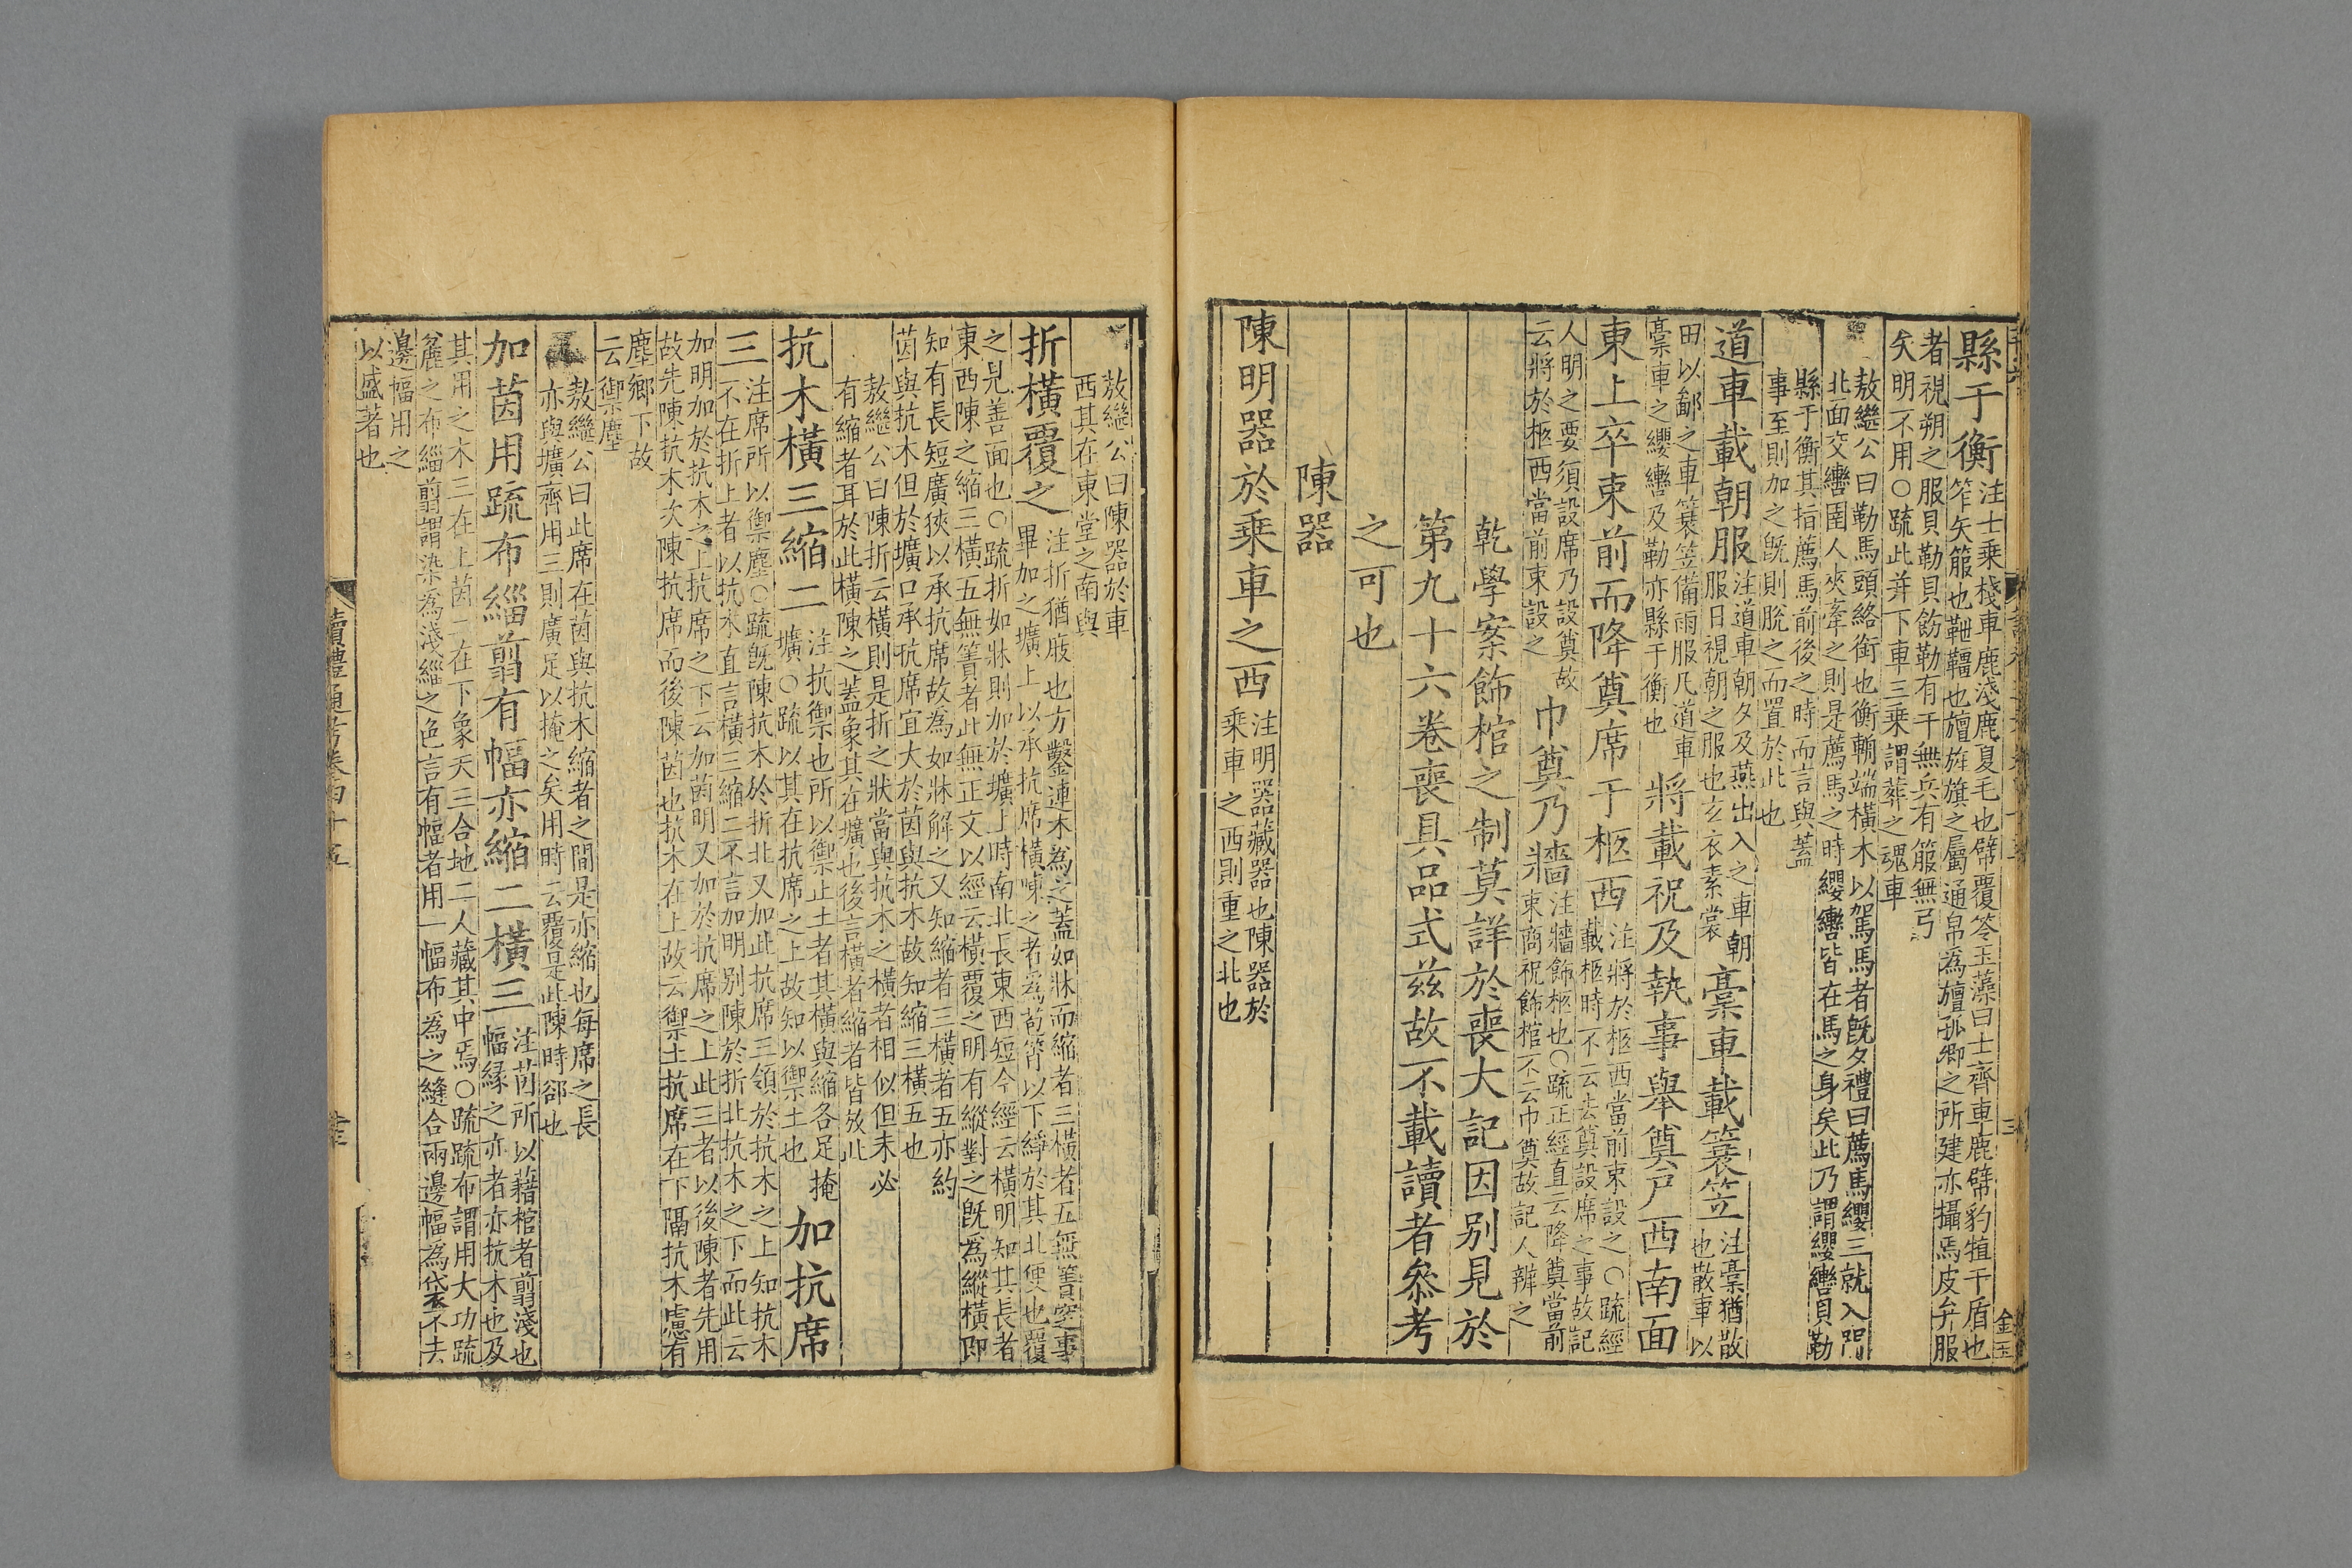 縣于衡注士乗棧車鹿淺鹿夏毛也幦覆笭玉藻曰士齊車鹿幦豹犆干盾也
笮矢箙也靾韁也旜旌旗之屬通帛為旜孤卿之所建亦攝焉皮弁服
者視朔之服貝勒貝飾勒有干無兵有箙無弓
矢明不用○疏此并下車三乗謂葬之魂車
敖繼公曰勒馬頭絡銜也衡輈端橫木以駕馬者旣夕禮曰薦馬纓三就入門
北面交轡圉人夾牽之則是薦馬之時纓轡皆在馬之身矣此乃謂纓轡貝勒
縣于衡其指薦馬前後之時而言與蓋
事至則加之旣則脫之而置於此也
道車載朝服注道車朝夕及燕出入之車朝
服日視朝之服也玄衣素裳
槀車載簑笠注槀猶散
也散車以
田以鄙之車簑笠備雨服凡道車
槀車之纓轡及勒亦縣于衡也
將載祝及執事舉奠戸西南面
東上卒束前而降奠席于柩西注將於柩西當前束設之○疏經
載柩時不云去奠設席之事故記
人明之要須設席乃設奠故
云將於柩西當前東設之
巾奠乃牆注牆飾柩也○疏正經直云降奠當前
東商祝飾棺不云巾奠故記人辨之
乾學案飾棺之制莫詳於喪大記因别見於
第九十六卷喪具品式茲故不載讀者叅考
之可也
陳器
陳明器於乗車之西注明器藏器也陳器於
乗車之西則重之北也
敖繼公曰陳器於車
西其在東堂之南與
折橫覆之注折猶庪也方鑿連木為之蓋如牀而縮者三橫者五無簀窆事
畢加之壙上以承抗席橫陳之者為苞筲以下綪於其北便也覆
之見善面也○疏折如牀則加於壙上時南北長東西短今經云橫明知其長者
東西陳之縮三橫五無簀者此無正文以經云橫覆之明有縱對之旣為縱橫即
知有長短廣狹以承抗席故為如牀解之又知縮者三橫者五亦約
茵與抗木但於壙口承抗席宜大於茵與抗木故知縮三橫五也
敖繼公曰陳折云橫則是折之狀當與抗木之橫者相似但未必
有縮者耳於此橫陳之蓋象其在壙也後言橫者縮者皆放此
抗木橫三縮二注抗禦也所以禦止土者其橫與縮各足掩
壙○疏以其在抗席之上故知以禦土也
加抗席
三注席所以禦塵○疏旣陳抗木於折北又加此抗席三領於抗木之上知抗木
不在折上者以抗木直言橫三縮二不言加明别陳於折北抗木之下而此云
加明加於抗木之上抗席之下云加茵明又加於抗席之上此三者以後陳者先用
故先陳抗木次陳抗席而後陳茵也抗木在上故云禦土抗席在下隔抗木慮有
塵鄉下故
云禦塵
敖繼公曰此席在茵與抗木縮者之間是亦縮也每席之長
亦與壙齊用三則廣足以掩之矣用時云覆是此陳時郤也
加茵用疏布緇翦有幅亦縮二橫三注茵所以藉棺者翦淺也
幅縁之亦者亦抗木也及
其用之木三在上茵二在下象天三合地二人藏其中焉○疏疏布謂用大功疏
麄之布緇翦謂染為淺緇之色言有幅者用一幅布為之縫合兩邊幅為袋不去
邊幅用之
以盛著也
讀禮通考卷四十五